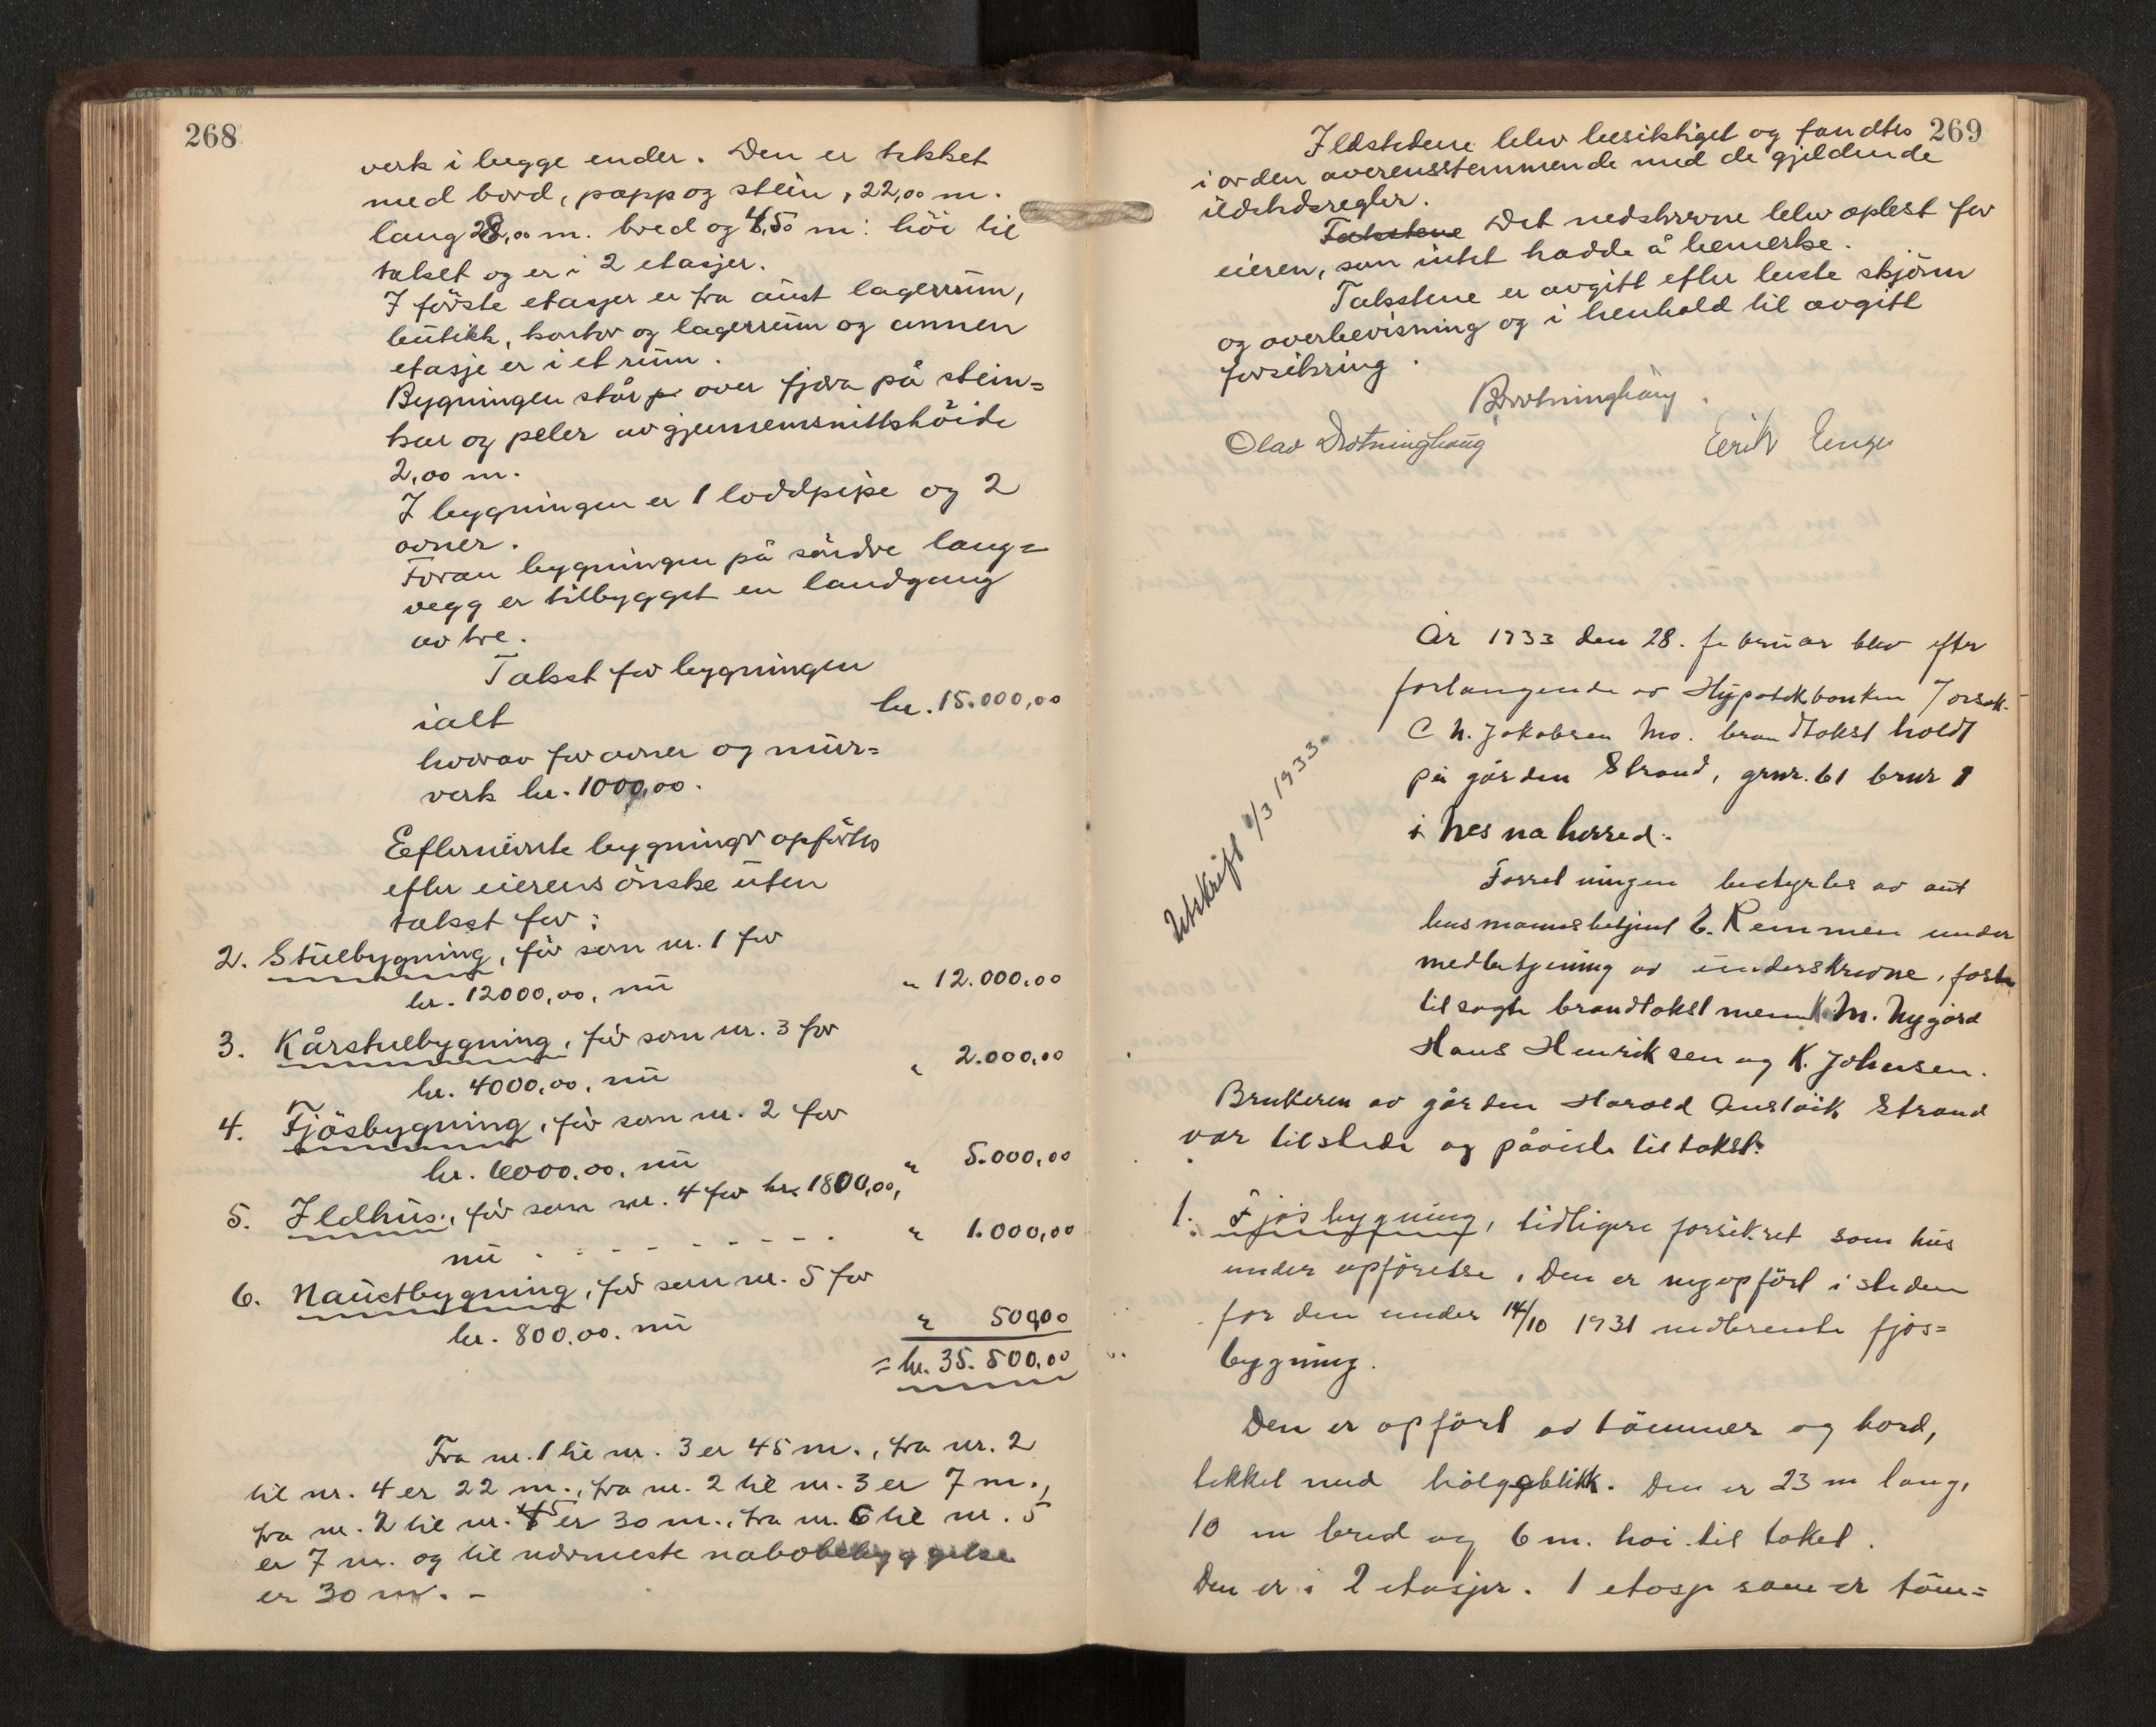 268
verk i begge ender. Den er tekket
med bord, papp og stein, 22,00 m.
lang 8,00 m. bred og 4,50 m. höi til
taket og er i 2 etasjer.
I förste etasjer er fra aust lagerrum,
butikk, kontor og lagerrum og annen
etasje er i et rum.
Bygningen står over fjæra på stein=
kar og peler av gjennemsnittshöide
2,00 m.
I bygningen er 1 loddpipe og 2
ovner.
Foran bygningen på söndre lang=
vegg er tilbygget en landgang
av tre.
Takst for bygningen
ialt kr. 15.000,00
hvorav for ovner og mur=
verk kr. 1000,00.
Efternevnte bygninger opförtes
efter eierens önske uten
takst for:
2. Stuebygning, för som nr. 1 for
kr. 12000,00, nu " 12.000,00
3. Kårstuebygning, för som nr. 3 for
kr. 4000,00, nu " 2.000,00
4. Fjösbygning, för som nr. 2 for
kr. 6000,00, nu " 5.000,00
5. Ildhus, för som nr. 4 for kr. 1800,00,
nu - - - - - - - - " 1.000,00
6. Naustbygning, för som nr. 5 for
kr. 800,00. nu " 500,00
= kr. 35.500,00
Fra nr. 1 til nr. 3 er 45 m., fra nr. 2
til nr. 4 er 22 m., fra nr. 2 til nr. 3 er 7 m.,
fra nr. 2 til nr. 5 er 30 m., fra nr. 6 til nr. 5
er 7 m. og til nærmeste nabobebyggelse
er 30 m. -
269
Ildstedene blev besiktiget og fandtes
i orden overensstemmende med de gjeldende
ildstedsregler.
Takstene Det nedskrevne blev oplest for
eieren, som intet hadde å bemerke.
Takstene er avgitt efter beste skjönn
og overbevisning og i henhold til avgitt
forsikring.
BDrotninghaug.
Olav Drotninghaug Eerik Enge
År 1933 den 28. februar blev efter
forlangende av Hypotekbanken Forsik-
C N. Jakobsen Mo. brandtakst holdt
på gården Strand, grnr. 61 brnr 1
i Nesna herred.
Utskrift 1/3 1933.
Forretningen bestyrtes av aut
husmannsbetjent E. Remmen under
medbetjening av underskrevne, faste
tilsagte brandtakstmenn M. Nygård
Hans Henriksen og K. Johansen.
Brukeren av gården Harald Austvik Strand
var tilstede og påviste til takst:
1. Fjösbygning, tidligere forsikret som hus
under opförelse. Den er nyopfört i steden
for den under 14/10 1931 nedbrente fjös=
bygning.
Den er opfört av tömmer og bord,
tekket med bölgeblikk. Den er 23 m lang,
10 m bred og 6 m. höi til taket.
Den er i 2 etasjer. 1 etasje som er töm=